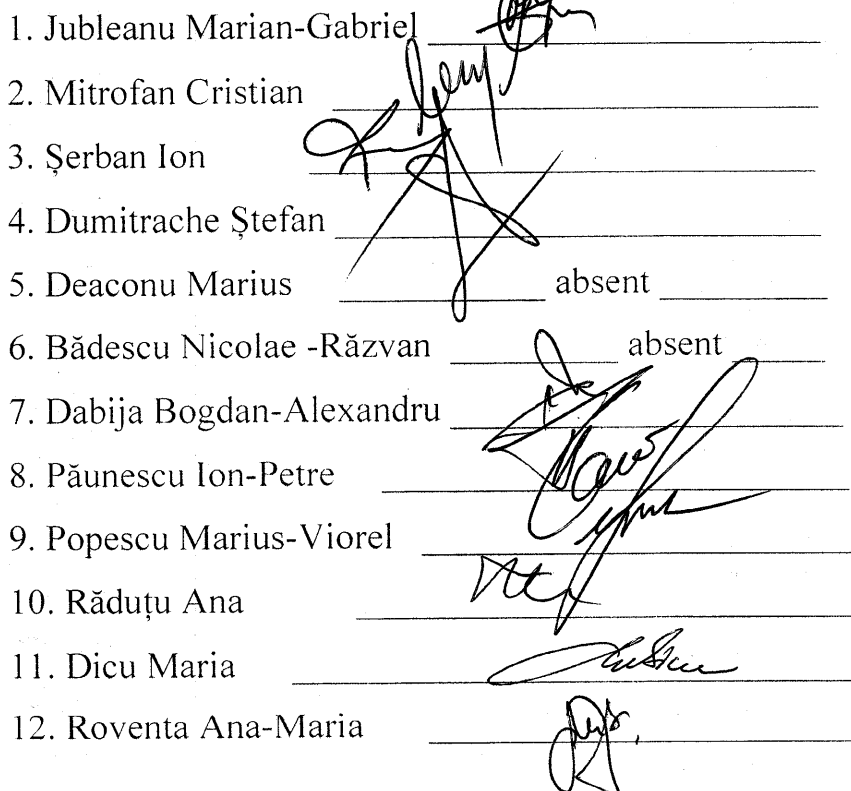 1. Jubleanu Marian-Gabriel
2. Mitrofan Cristian
3. Șerban Ion
4. Dumitrache Ștefan
5. Deaconu Marius absent
6. Bădescu Nicolae -Răzvan absent
7. Dabija Bogdan-Alexandru
8. Păunescu Ion-Petre
9. Popescu Marius-Viorel
10. Răduțu Ana
11. Dicu Maria
12. Roventa Ana-Maria